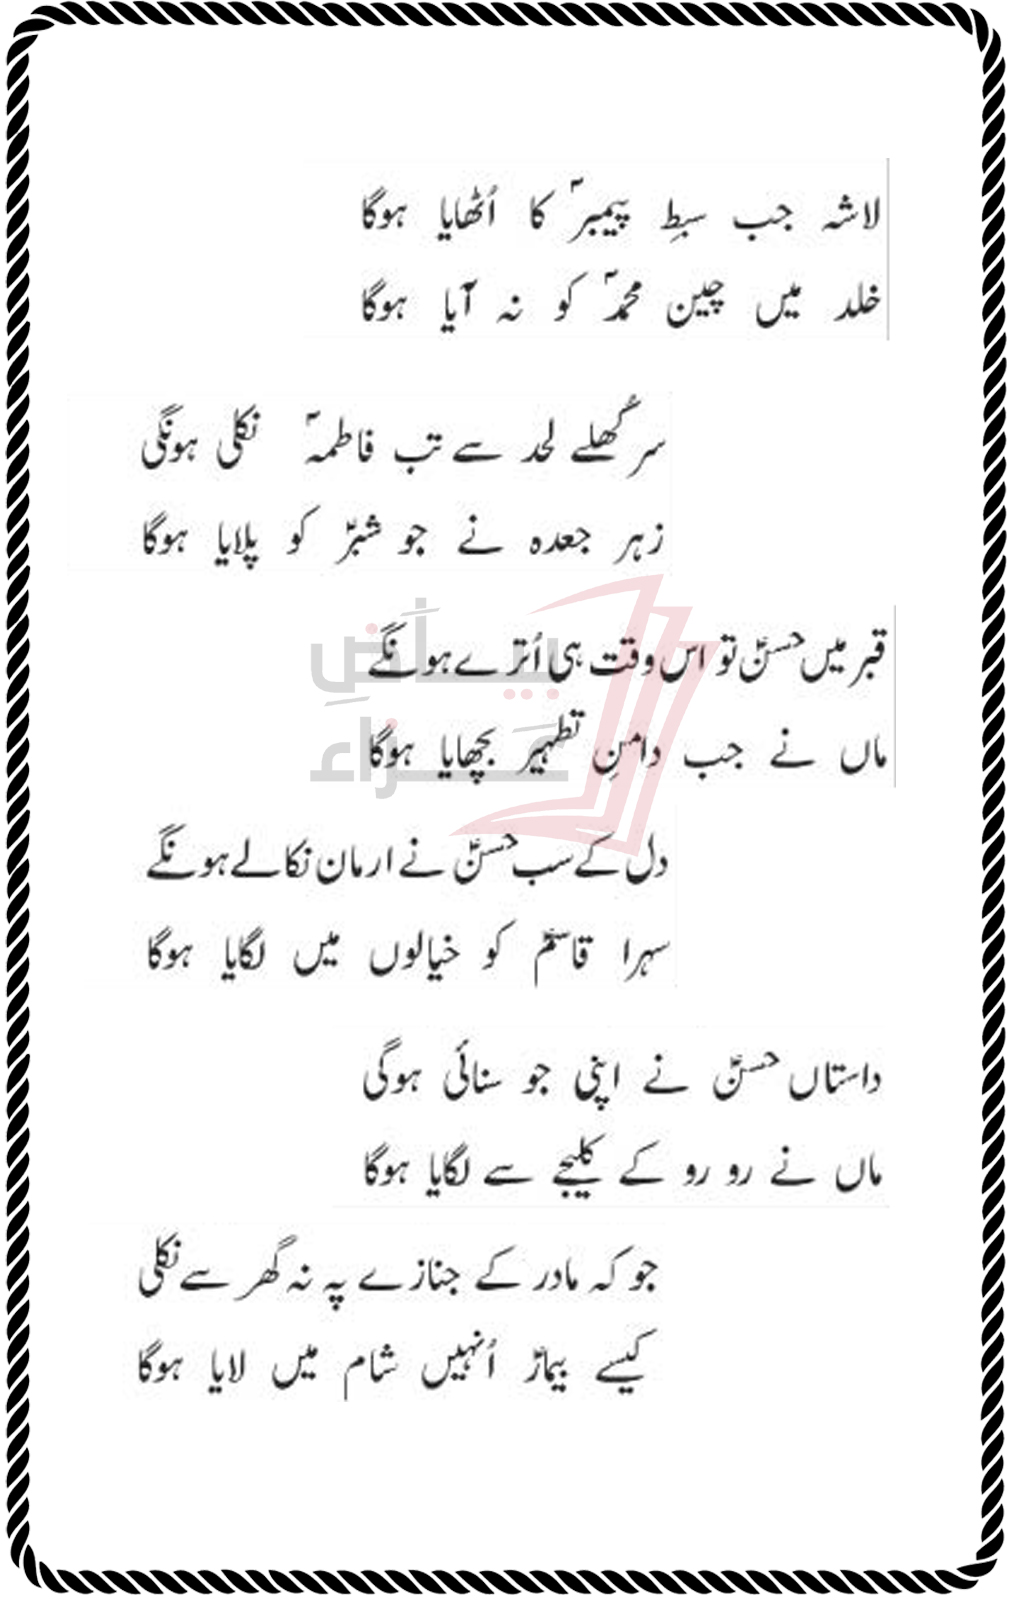 لاشہ جب سبطِ پیمبرؐ کا اُٹھایا ہوگا
خلد میں چین محمدؐ کو نہ آیا ہوگا
سر کُھلے لحد سے تب فاطمہؑ نکلی ہونگی
زہر جعدہ نے جو شبرؑ کو پلایا ہوگا
قبر میں حسنؑ تو اس وقت ہی اُترے ہونگے
ماں نے جب دامنِ تطہیر بچھایا ہوگا
دل کے سب حسنؑ نے ارمان نکالے ہونگے
سہرا قاسمؑ کو خیالوں میں لگایا ہوگا
داستاں حسنؑ نے اپنی جو سنائی ہوگی
ماں نے رو رو کے کلیجے سے لگایا ہوگا
جو کہ مادر کے جنازے پہ نہ گھر سے نکلی
کیسے بیمارؑ اُنہیں شام میں لایا ہوگا
بیاَضِ
عَزاء